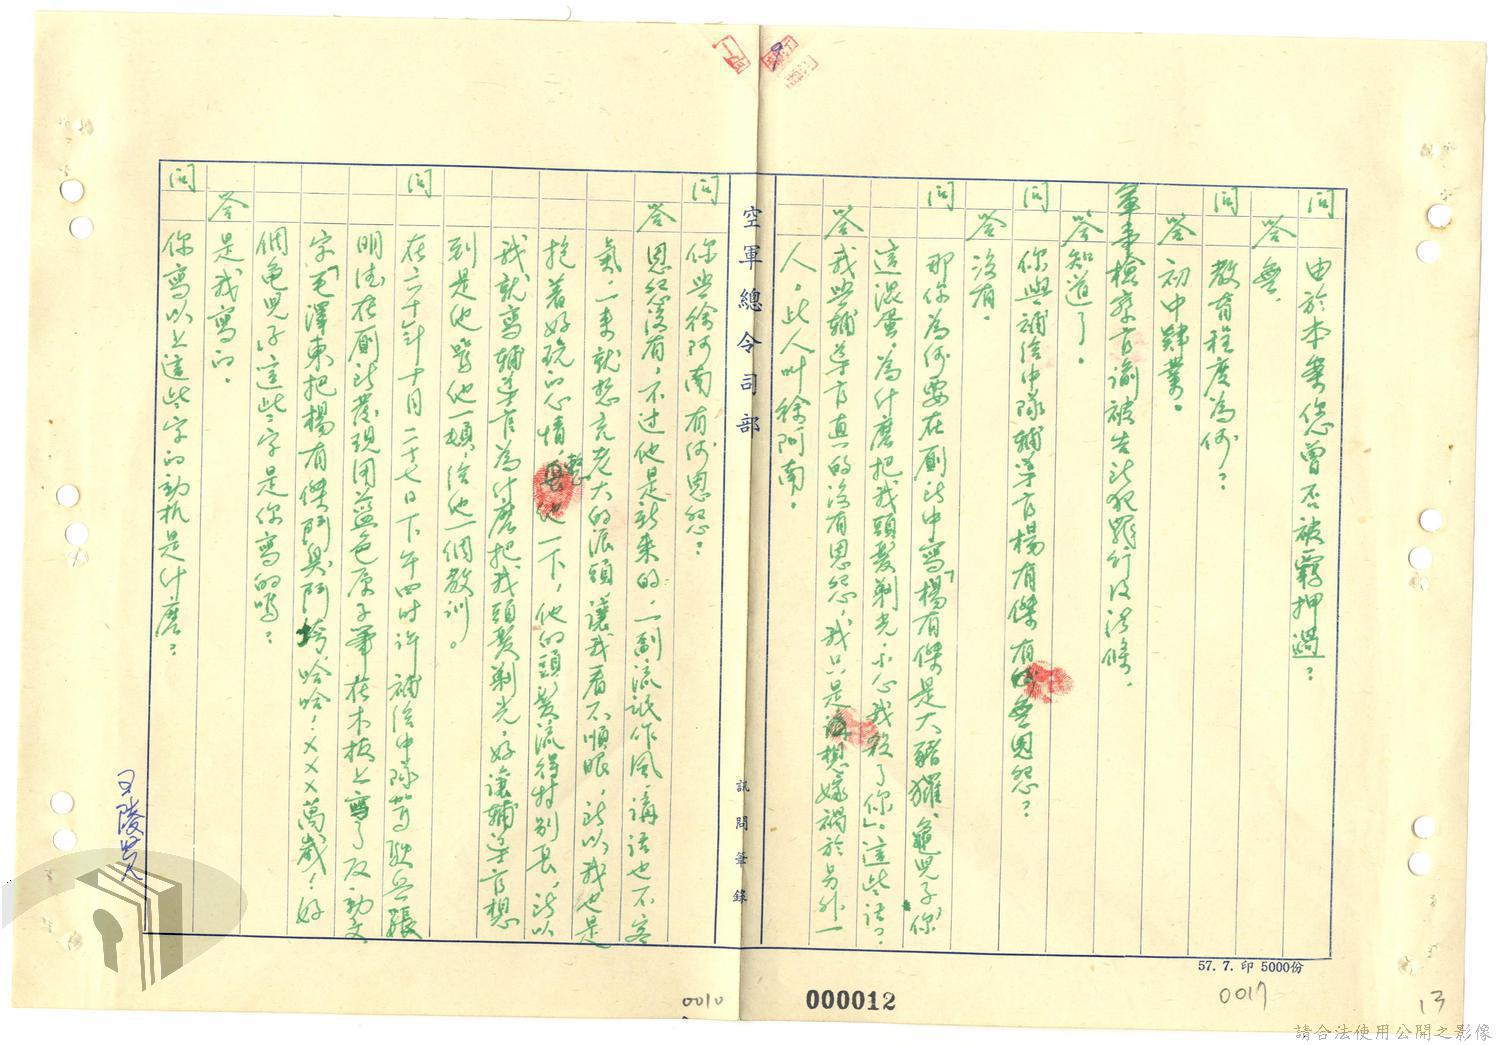 問 由於本案您曾否被羈押過？
答 無。
問 教育程度為何？
答 初中肄業。
軍事檢察官諭被告所犯罪行及法條。
答 知道了。
問 你與補給中隊輔導官楊有傑有何無恩怨？
答 沒有。
問 那你為何要在厠所中寫「楊有傑是大豬玀、龜兒子你
這混蛋，為什麼把我頭髮剃光，小心我殺了你」。這些話？
答 我與輔導官真的沒有恩怨，我只是想嫁禍於另外一
人。此人叫徐阿南。
空軍總令司部
訊問筆錄
問 你與徐阿南有何恩怨？
答 恩怨沒有，不过他是新来的，一副流氓作風，講話也不客
氣，一來就想充老大的派頭，讓我看不順眼，所以我也是
抱着好玩的心情整他一下，他的頭髮流得特別長，所以
我就寫輔導官為什麼把我頭髮剃光，好讓輔導官想
到是他罵他一頓，給他一個教訓。
問 在六十年十月二十七日下午四時許補給中隊駕駛兵張
明德在厠所發現用藍色原子筆在木板上寫了反動文
字「毛澤東把楊有傑鬥臭鬥垮哈哈！×××萬歲！好
個龜兒子」這些字是你寫的嗎？
答 是我寫的。
問 你寫以上這些字的動机是什麼？
57. 7. 印 5000份
0010
000012
0017
13
請合法使用公開之影像